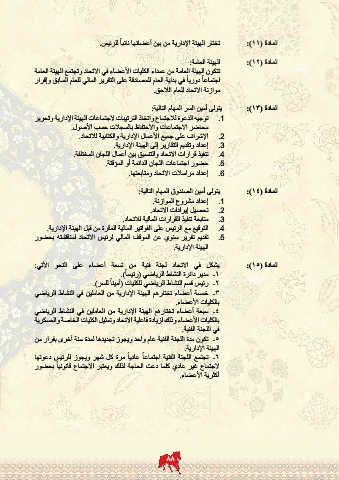 المادة (١١): تختار الهيئة الإدارية من بين أعضائها نائباً للرئيس.
المادة (١٢): الهيئة العامة:
تتكون الهيئة العامة من عمداء الكليات الأعضاء في الاتحاد وتجتمع الهيئة العامة
اجتماعاً دورياً في بداية العام للمصادقة على التقرير المالي للعام السابق وإقرار
موازنة الاتحاد للعام اللاحق.
المادة (١٣): يتولى أمين السر المهام التالية:
1. توجيه الدعوة للاجتماع واتخاذ الترتيبات لاجتماعات الهيئة الإدارية وتحرير
محاضر الاجتماعات والاحتفاظ بالسجلات حسب الأصول.
2. الإشراف على جميع الأعمال الإدارية والكتابية للاتحاد.
3. إعداد وتقديم التقارير إلى الهيئة الإدارية.
4. تنفيذ قرارات الاتحاد والتنسيق بين أعمال اللجان المختلفة.
5. حضور اجتماعات اللجان الدائمة أو المؤقتة.
6. إعداد مراسلات الاتحاد ومتابعتها.
المادة (١٤): يتولى أمين الصندوق المهام التالية:
1. إعداد مشروع الموازنة.
2. تحصيل إيرادات الاتحاد.
3. متابعة تنفيذ القرارات المالية للاتحاد.
4. التوقيع مع الرئيس على الفواتير المالية المقرة من قبل الهيئة الإدارية.
5. تقديم تقرير سنوي عن الموقف المالي لرئيس الاتحاد لمناقشته بحضور
الهيئة الإدارية.
المادة (١٥): يشكل في الاتحاد لجنة فنية من تسعة أعضاء على النحو الآتي:
١- مدير دائرة النشاط الرياضي (رئيساً).
٢- رئيس قسم النشاط الرياضي للكليات (أميناً للسر).
٣- خمسة أعضاء تختارهم الهيئة الإدارية من العاملين في النشاط الرياضي
بالكليات الأعضاء.
٤- سبعة أعضاء تختارهم الهيئة الإدارية من العاملين في النشاط الرياضي
بالكليات الأعضاء وذلك لزيادة فاعلية الاتحاد وتمثيل الكليات الخاصة والعسكرية
في اللجنة الفنية.
٥- تكون مدة اللجنة الفنية عام واحد ويجوز تجديدها لمدة سنة أخرى بقرار من
الهيئة الإدارية.
٦- تجتمع اللجنة الفنية اجتماعاً عادياً مرة كل شهر ويجوز للرئيس دعوتها
لاجتماع غير عادي كلما دعت الحاجة لذلك ويعتبر الاجتماع قانونياً بحضور
أكثرية الأعضاء.